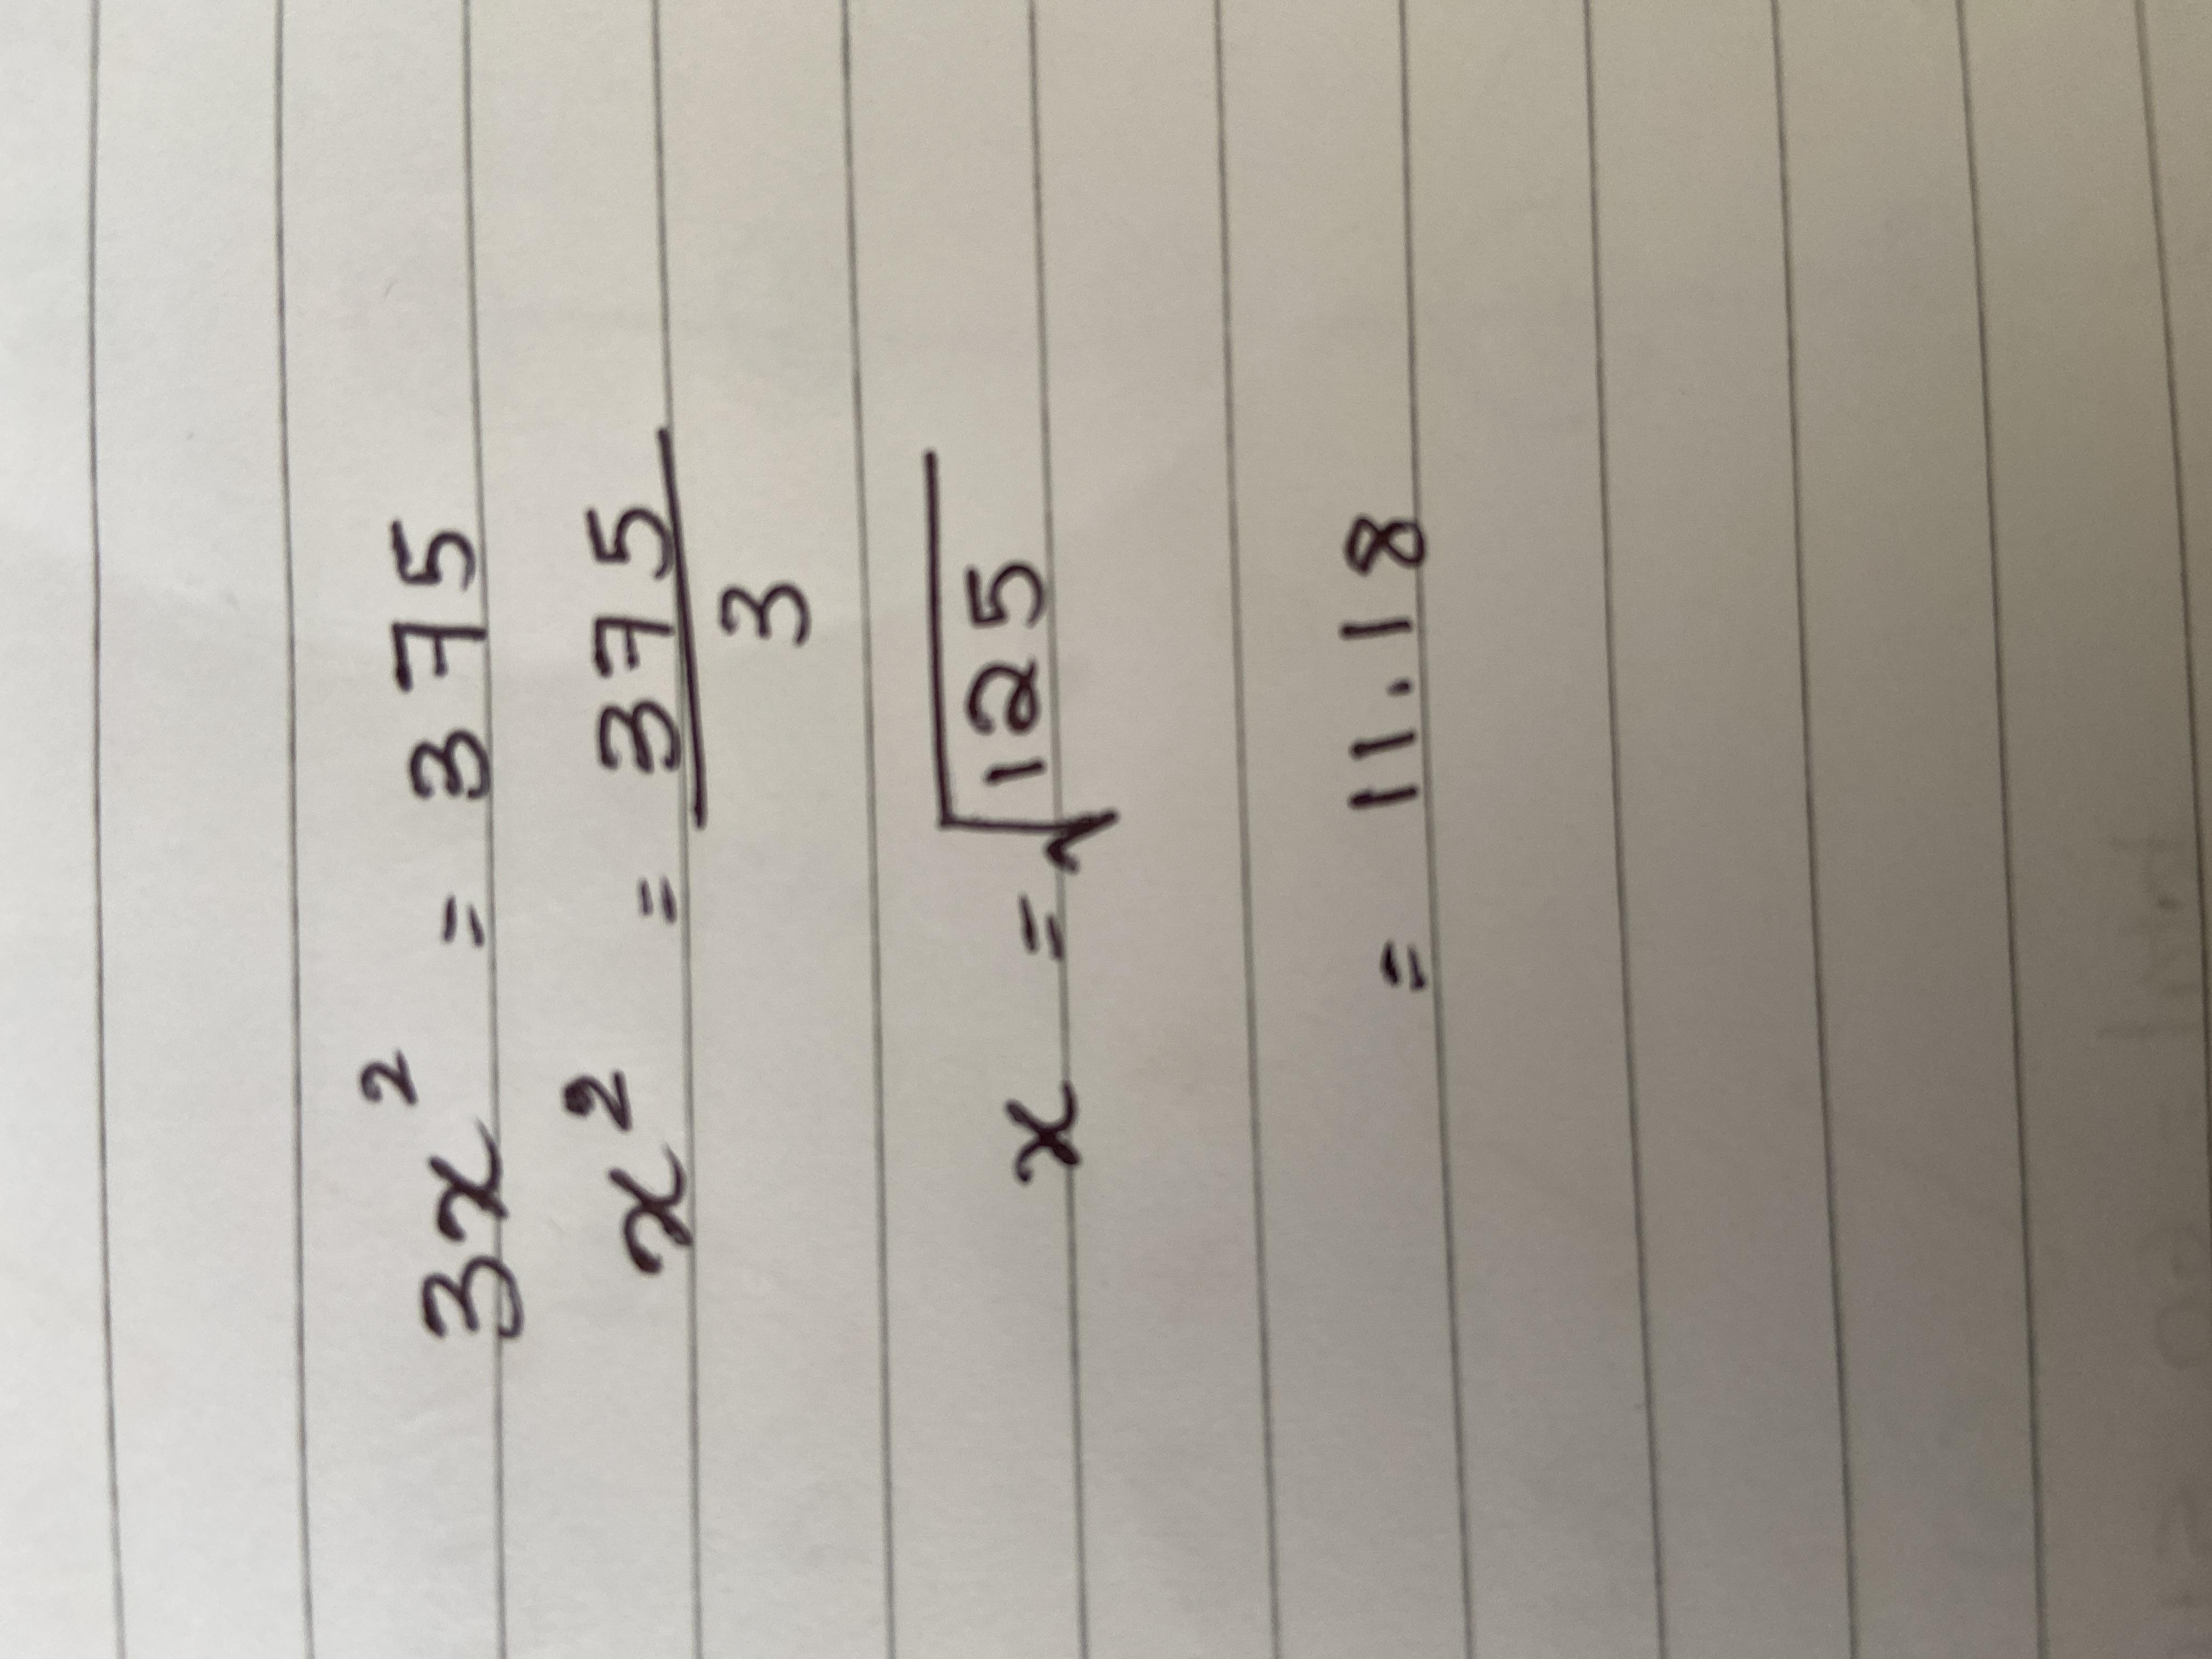 3x² = 375
x² = 375
3
x = √125
= 11.18